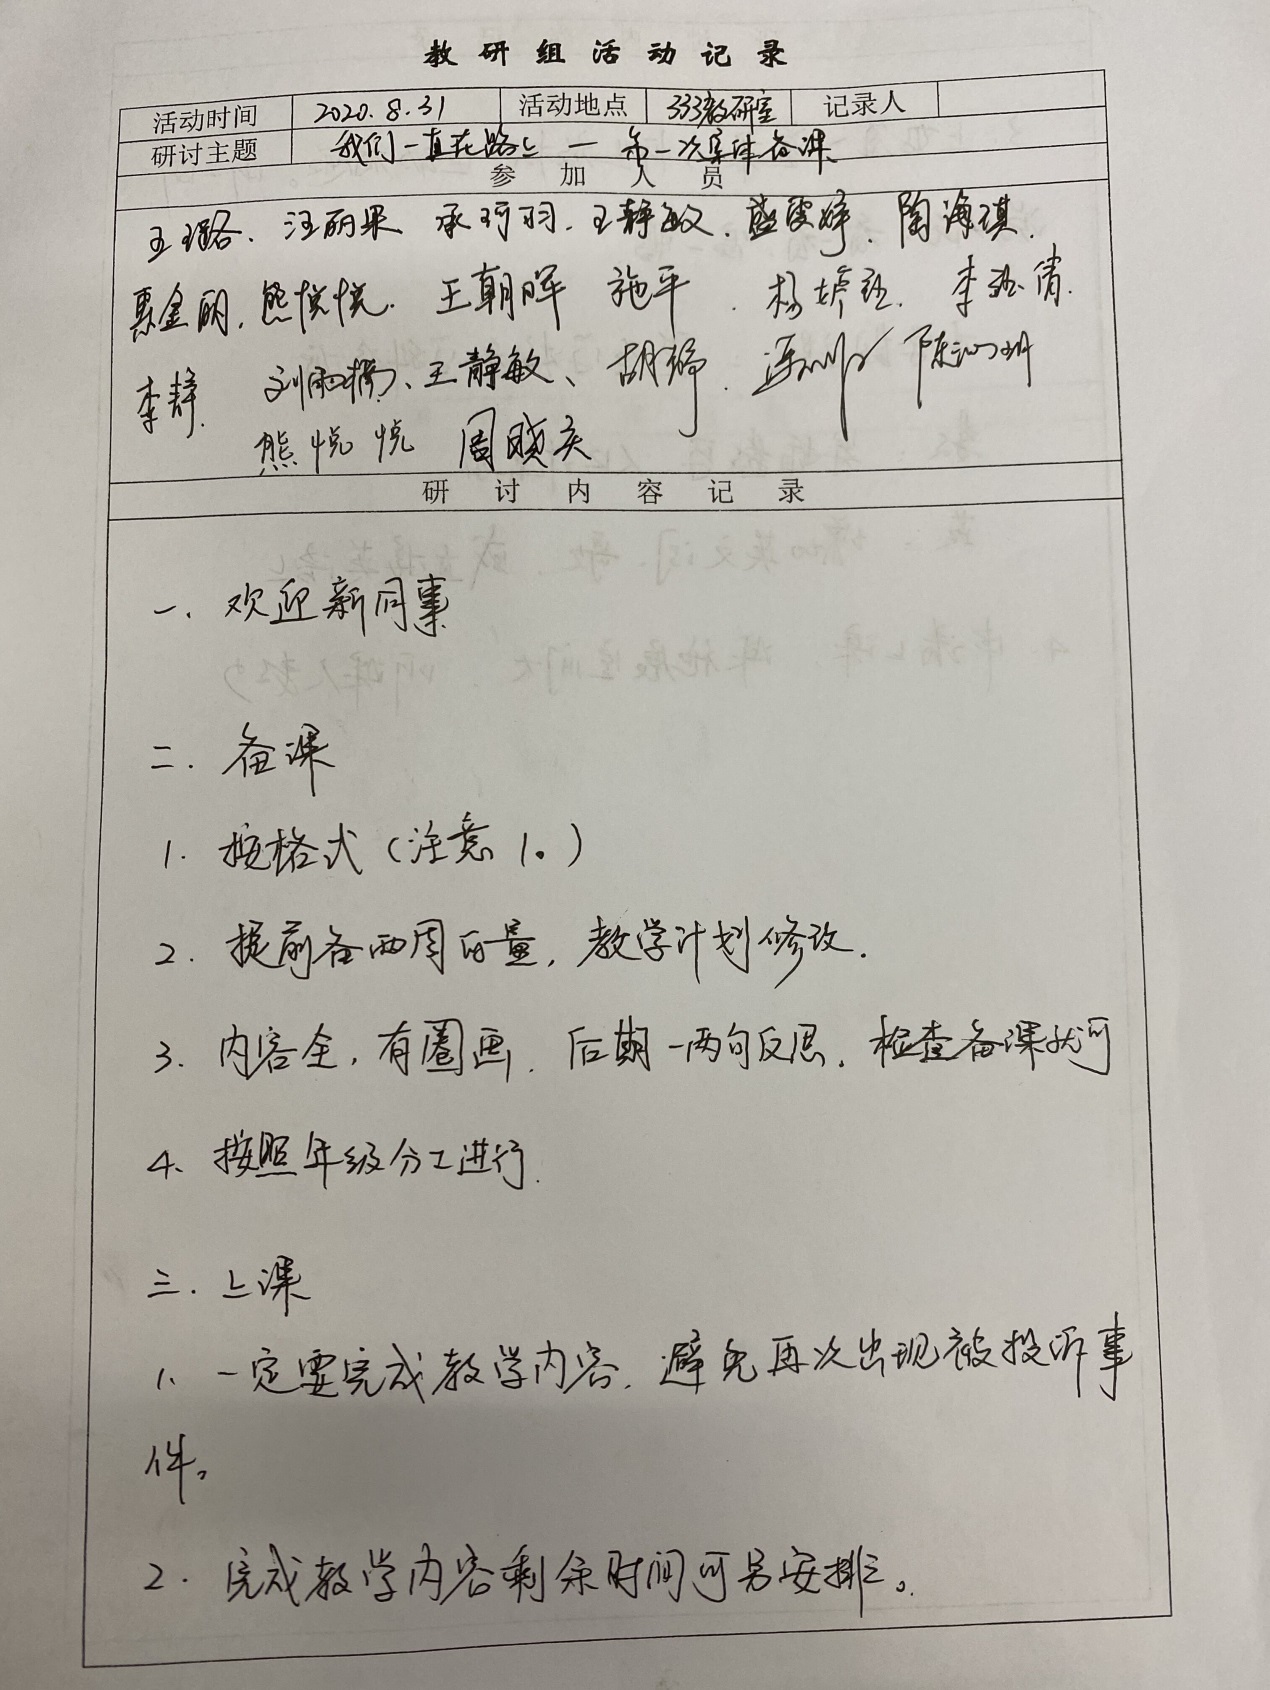 教研组活动记录
活动时间 2020.8.31 活动地点 333教研室 记录人
研讨主题 我们一直在路上 — 第一次集体备课
参加人员
王璐、汪丽果 承可羽、王静敏、盛雯婷、陶海琪、
惠金丽、熊悦悦、王朝晖 施平、杨 李 倩.
李静 刘雨楠、王静敏、胡婷 陈沁玥
熊悦悦 周晓庆
研讨内容记录
一、欢迎新同事
二、备课
1. 按格式(注意 1。)
2. 提前备两周的量,教学计划修改.
3. 内容全,有圈画,后期一两句反思,检查备课就可
4、按照年级分工进行.
三、上课
1、一定要完成教学内容,避免再次出现被投诉事
件。
2. 完成教学内容剩余时间可另安排。